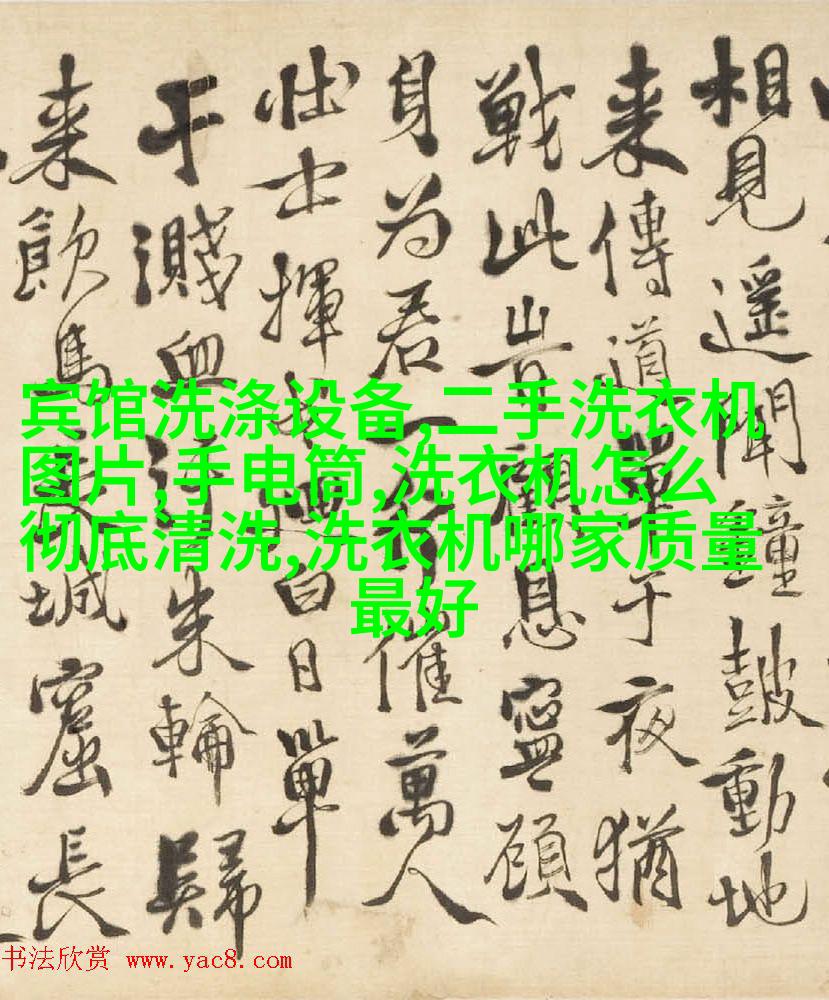 相見遥聞鐘鼓動地
来傳道單于夜猶
戰此旹顧恩寧顧
身为君一行催萬人
壮士揮白日單
于濺血汙朱輪歸
来飲馬長城窟長
宾馆洗涤设备,二手洗衣机
图片,手电筒,洗衣机怎么
彻底清洗,洗衣机哪家质量
最好
书法欣赏 www.yac8.com